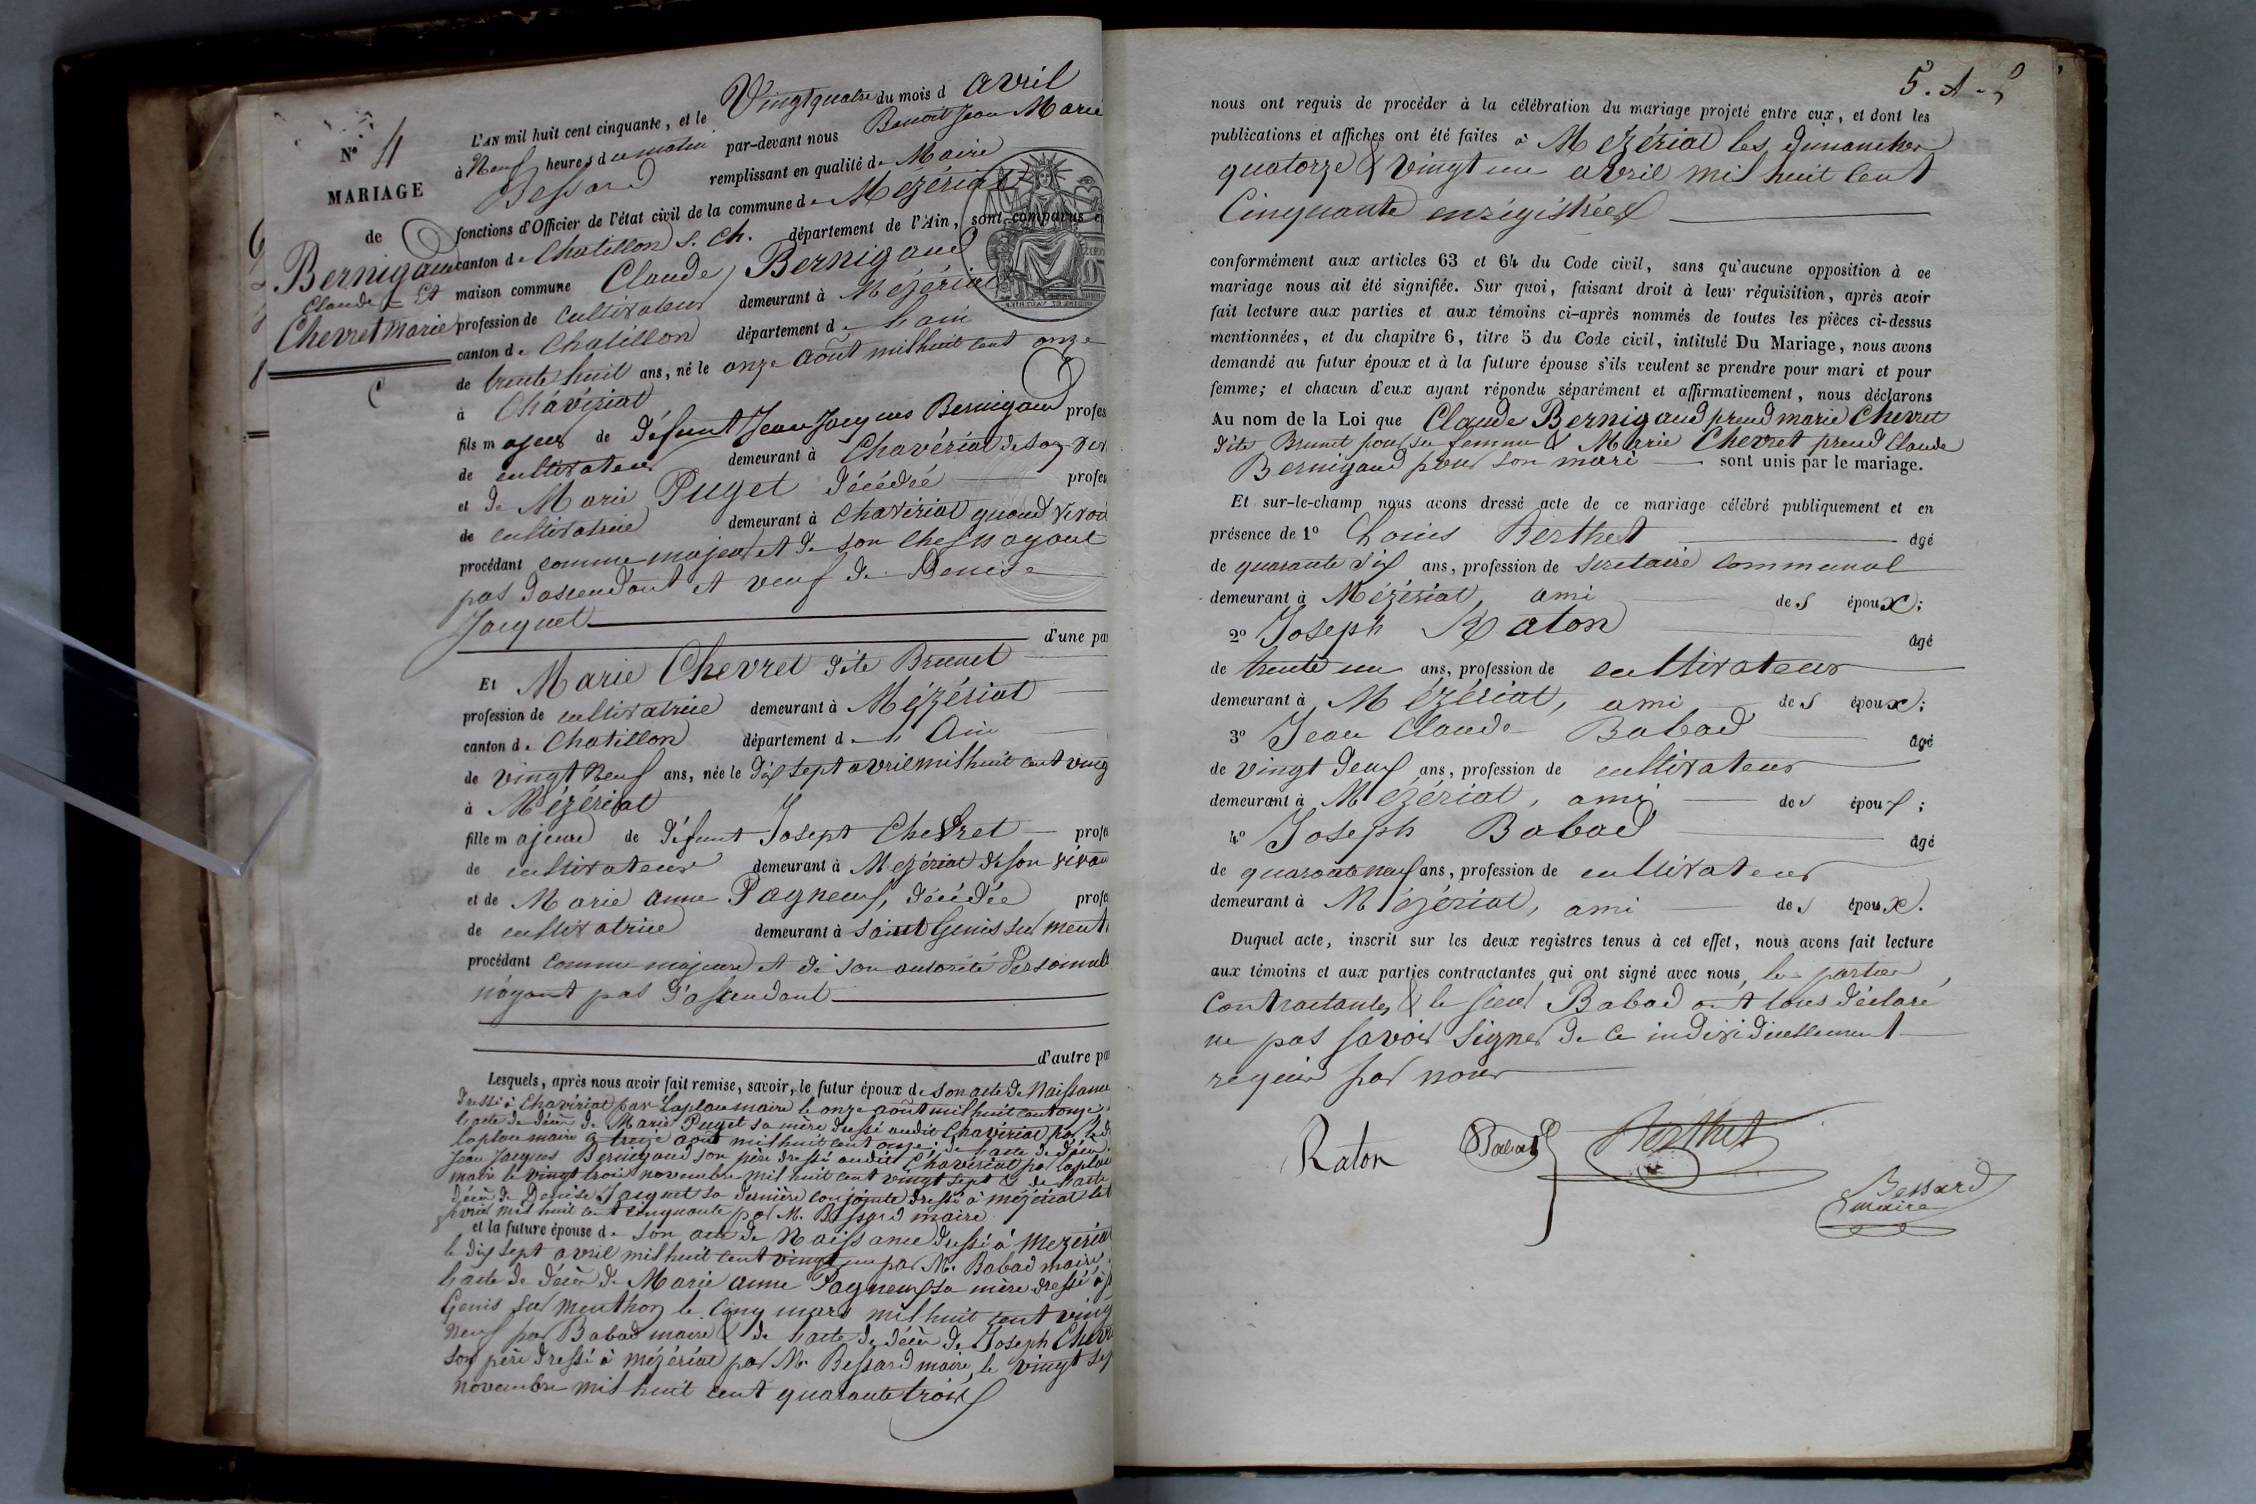 N° 4
MARIAGE
de
Bernigaud
Claude Et
Chevret marie
L'AN mil huit cent cinquante, et le Vingt quatre du mois d avril
à Neuf heures du matin par-devant nous Benoit Jean Marie
Bessard remplissant en qualité de Maire
fonctions d'Officier de l'état civil de la commune de Mézériat
canton de Chatillon s. Ch. département de l'Ain, sont comparus e
maison commune Claude Bernigaud
profession de cultivateur demeurant à Mézériat
canton de Chatillon département de L'ain
de trente huit ans, né le onze août mil huit cent onze
à Chavériat
fils majeur de défunt Jean Jacques Bernigaud profes
de cultivateur demeurant à Chavériat de son viv
et de Marie Puget décédée profes
de cultivatrice demeurant à Chavériat quand vivai
procédant comme majeur et de son chef n'ayant
pas d'ascendant et veuf de Denise
Jacquet
d'une pa
Et Marie Chevret dite Brunet
profession de cultivatrice demeurant à Mézériat
canton de Chatillon département de L'Ain
de vingt Neuf ans, née le dix sept avril mil huit cent ving
à Mézériat
fille majeure de défunt Josept Chevret profe
de cultivateur demeurant à Mézériat de son vivan
et de Marie anne Pagneux, décédée profe
de cultivatrice demeurant à saint Genis sur ment
procédant comme majeure et de son autorité Personnell
n'ayant pas d'ascendant
d'autre pa
Lesquels, après nous avoir fait remise, savoir, le futur époux de son acte de Naissance
dressé à Chavériat par Laplace maire le onze août mil huit cent onze
l'acte de décès de Marie Puget sa mère dressé audit Chavériat par
Laplace maire le treize août mil huit cent onze; de l'acte de décès
Jean Jacques Bernigaud son père dressé audit Chavériat par Laplace
maire le vingt trois novembre mil huit cent vingt sept & de l'acte
décès de Denise Jacquet sa dernière conjointe dressé à mézériat le
mil huit cent cinquante par M. Bessard maire
et la future épouse de son acte de Naissance dressé à Mézériat
le dix sept avril mil huit cent vingt un par M. Babad maire
l'acte de décès de Marie anne Pagneux sa mère dressé à
Genis sur Menthon le Cinq mars mil huit cent ving
Neuf par Babad maire & de l'acte de décès de Joseph Chevr
son père dressé à mézériat par M. Bessard maire, le vingt sep
novembre mil huit cent quarante trois
nous ont requis de procéder à la célébration du mariage projeté entre eux, et dont les
publications et affiches ont été faites à Mézériat les dimanches
quatorze & vingt un avril mil huit cent
Cinquante enrégistrées
conformément aux articles 63 et 64 du Code civil, sans qu'aucune opposition à ce
mariage nous ait été signifiée. Sur quoi, faisant droit à leur réquisition, après avoir
fait lecture aux parties et aux témoins ci-après nommés de toutes les pièces ci-dessus
mentionnées, et du chapitre 6, titre 5 du Code civil, intitulé Du Mariage, nous avons
demandé au futur époux et à la future épouse s'ils veulent se prendre pour mari et pour
femme; et chacun d'eux ayant répondu séparément et affirmativement, nous déclarons
Au nom de la Loi que Claude Bernigaud prend marie Chevret
dite Brunet pour sa femme & Marie Chevret prend Claude
Bernigaud pour son mari sont unis par le mariage.
Et sur-le-champ nous avons dressé acte de ce mariage célébré publiquement et en
présence de 1° Louis Berthet âgé
de quarante six ans, profession de secrétaire communal
demeurant à Mézériat, ami des époux;
2° Joseph Raton âgé
de trente un ans, profession de cultivateur
demeurant à Mézériat, ami des époux;
3° Jean Claude Babad âgé
de vingt deux ans, profession de cultivateur
demeurant à Mézériat, ami des époux;
4° Joseph Babad âgé
de quarante neuf ans, profession de cultivateur
demeurant à Mézériat, ami des époux.
Duquel acte, inscrit sur les deux registres tenus à cet effet, nous avons fait lecture
aux témoins et aux parties contractantes, qui ont signé avec nous, les parties
contractantes & le sieur Babad ont tous déclaré
ne pas savoir signer de ce individuellement
requis par nous
Raton Babad Berthet
Bessard
maire